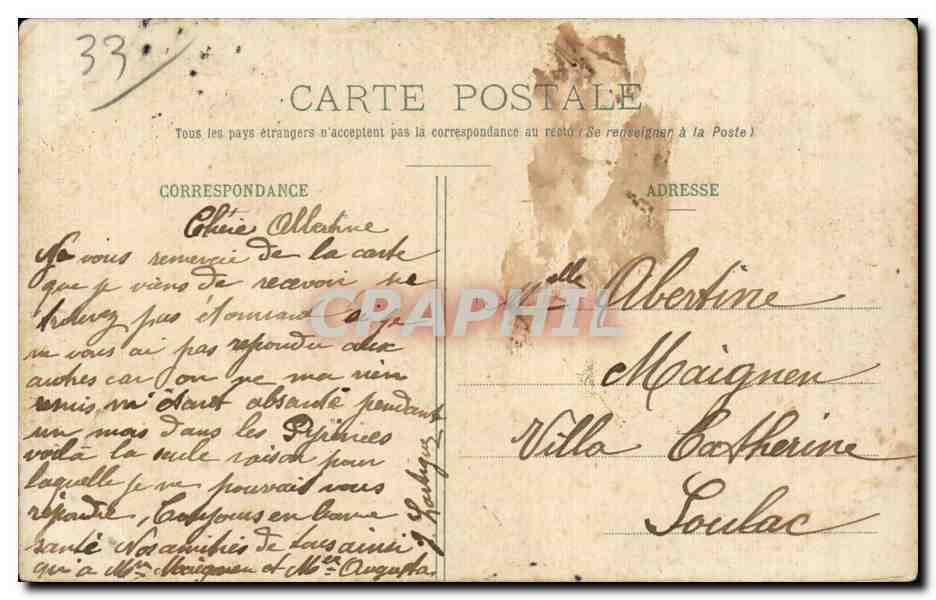 33
CARTE POSTALE
Tous les pays étrangers n'acceptent pas la correspondance au recto (Se renseigner à la Poste)
CORRESPONDANCE
ADRESSE
Chére Albertine
Je vous remercie de la carte
que je viens de recevoir ne
trouvez pas étonnant si je
ne vous ai pas repondu aux
autres car on ne ma rien
remis, m'étant absanté pendant
un mois dans les Pyrénées
voilà la seule raison pour
laquelle je ne pouvais vous
répondre, Toujours en bonne
santé Nos amitiés de tous ainsi
qu'a Mme Maignen et Mr Augusta
J
Melle Abertine
Maignen
Villa Catherine
Soulac
CPAPHIL